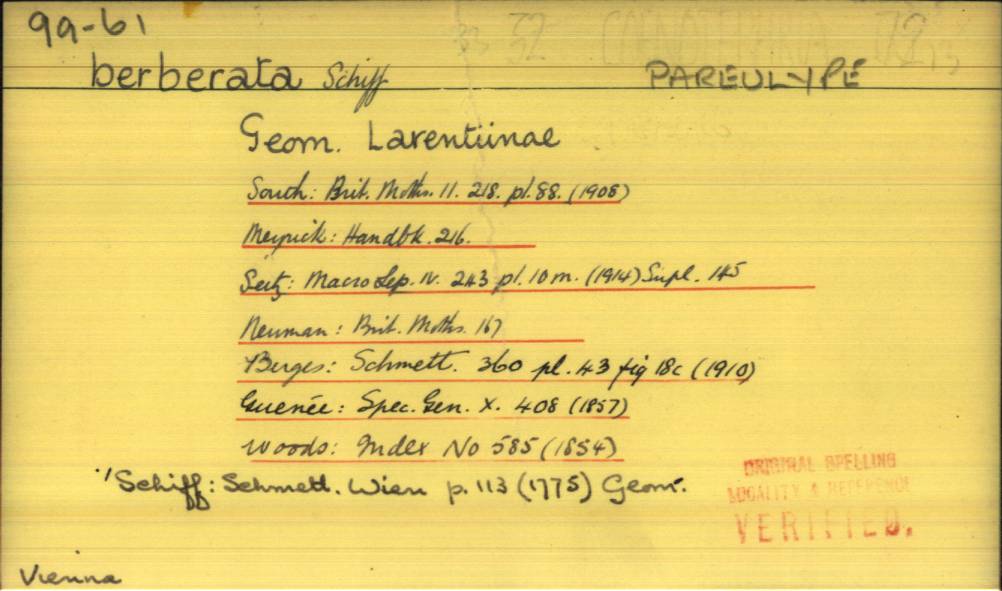 99-61
berberata Schiff PAREULYPE
Geom. Larentiinae
South: Brit. Moths. 11. 218. pl. 88. (1908)
Meyrick: Handbk. 216.
Seitz: Macro Lep. IV. 243 pl. 10 m. (1914) Supl. 145
Neuman: Brit. Moths. 167
Berges: Schmett. 360 pl. 43 fig 18c (1910)
Guenée: Spec. Gen. X. 408 (1857)
Woods: Index No 585 (1854)
Schiff: Schmett. Wien p. 113 (1775) Geom.
ORIGINAL SPELLING
LOCALITY & REFERENCE
VERIFIED.
Vienna